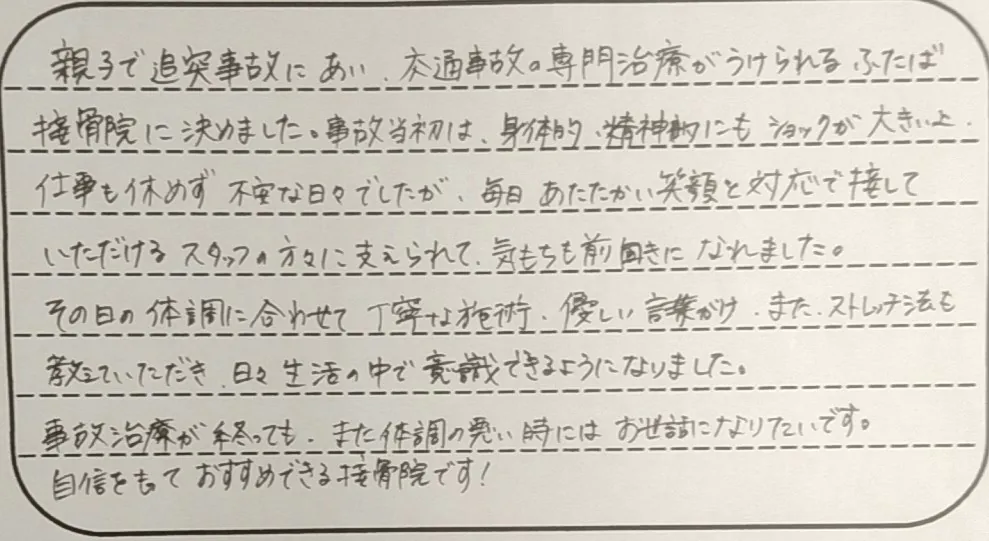 親子で追突事故にあい、交通事故の専門治療がうけられるふたば
接骨院に決めました。事故当初は、身体的、精神的にもショックが大きい上、
仕事も休めず不安な日々でしたが、毎日あたたかい笑顔と対応で接して
いただけるスタッフの方々に支えられて、気もちも前向きになれました。
その日の体調に合わせて丁寧な施術、優しい言葉がけ、また、ストレッチ法も
教えていただき、日々生活の中で意識できるようになりました。
事故治療が終っても、また体調の悪い時にはお世話になりたいです。
自信をもっておすすめできる接骨院です!